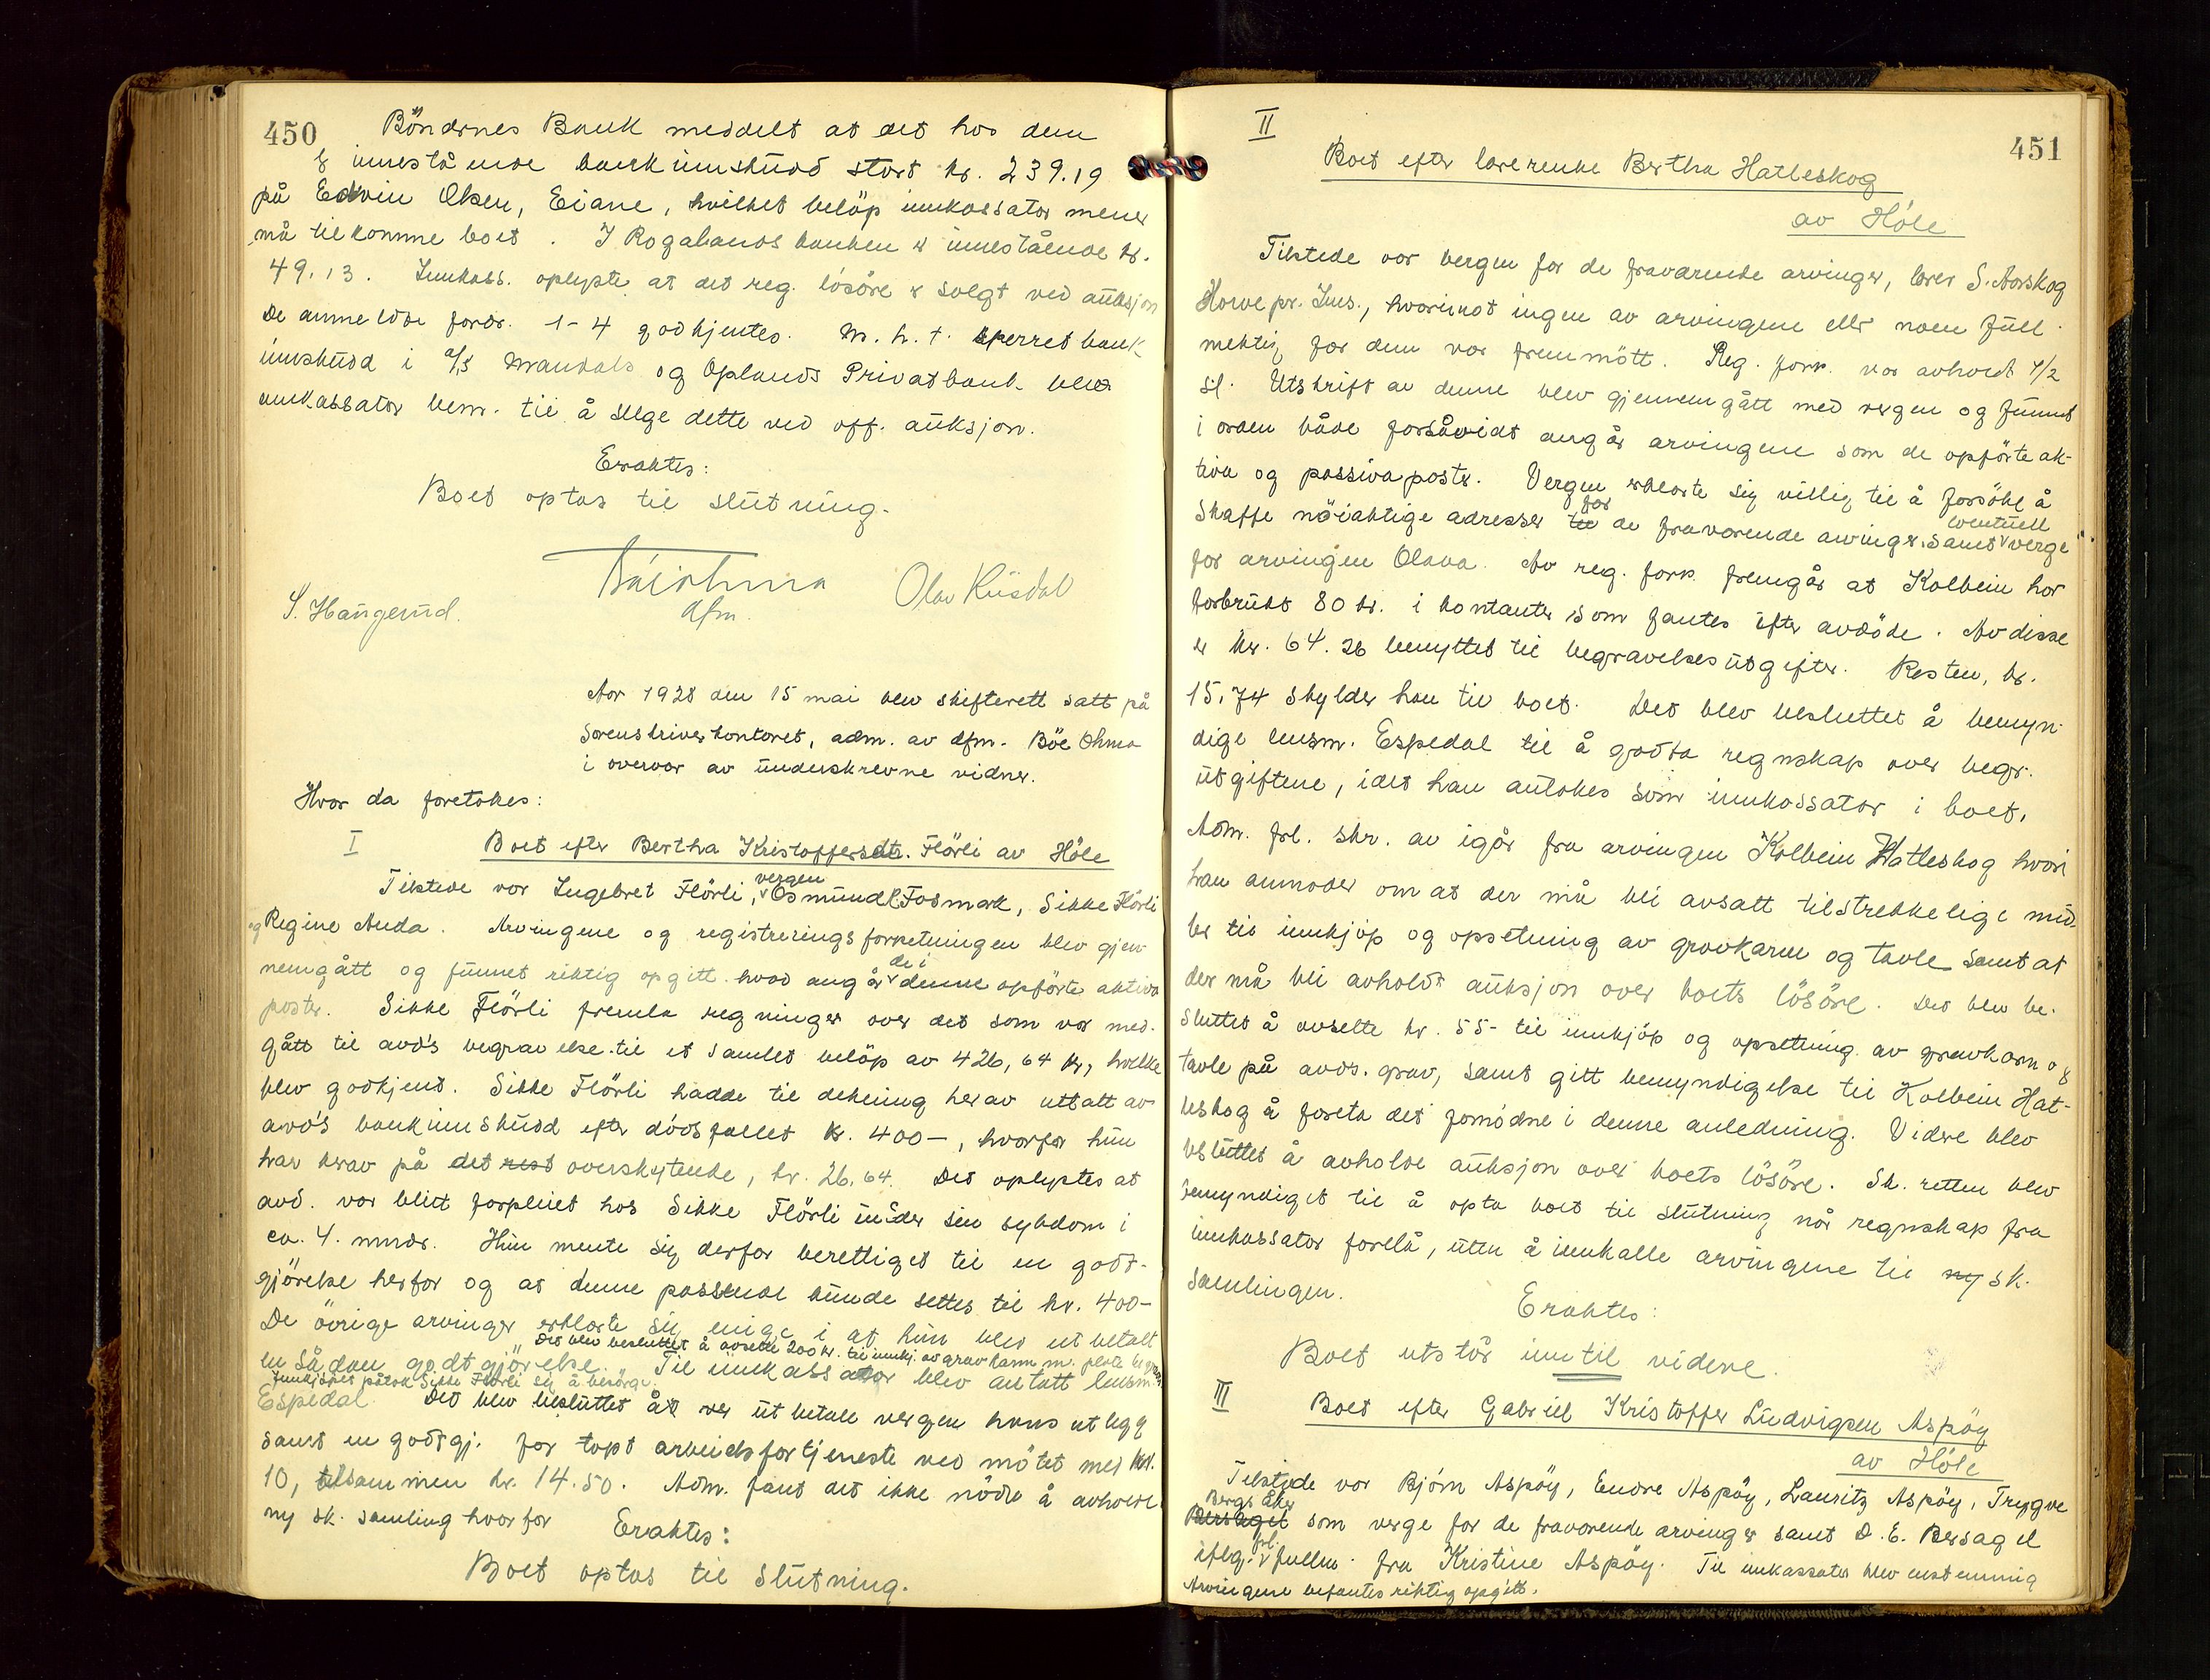 450
Böndernes Bank meddelt at det hos dem
er innestående bankinnskudd stort kr. 239.19
på Edvin Olsen, Eiane, hvilket belöp innkassator mener
må tilkomme boet. I Rogalandsbanken er innestående kr.
49.13. Innkass. oplyste at det reg. lösöre er solgt ved auksjon
De anmeldte fordr. 1-4 godkjentes. M. h. t. sperret bank-
innskudd i a/s Mandals og Oplands Privatbank blev
innkassator bem. til å selge dette ved off. auksjon.
Eraktes:
Boet optas til slutning.
Böe Ohma
dfm.
Olav Riisdal
S. Haugerud.
Aar 1928 den 15 mai blev skifterett satt på
sorenskriverkontoret, adm. av dfm. Böe Ohma
i overvær av underskrevne vidner.
Hvor da foretokes:
I Boet efter Bertha Kristoffersdtr. Flörli av Höle
Tilstede var Ingebret Flörli, vergen Osmund Fosmark, Sikke Flörli
og Regine Auda. Arvingene og registreringsforretningen blev gjen-
nemgått og funnet riktig opgitt hvad angår de i denne opförte aktiva
poster. Sikke Flörli fremla regninger over det som var med-
gått til avd's begravelse til et samlet belöp av 426,64 kr, hvilke
blev godkjent. Sikke Flörli hadde til dekning herav uttatt av
avd's bankinnskudd efter dödsfallet kr. 400-, hvorfor hun
har krav på det rest overskytende, kr. 26.64. Det oplystes at
avd. var blitt forpleiet hos Sikke Flörli under sin sykdom i
ca. 4. mndr. Hun mente sig derfor berettiget til en godt-
gjörelse herfor og at denne passende kunde settes til kr. 400-
De övrige arvinger erklærte sig enige i at hun blev utbetalt
Det blev besluttet å avsette 200 kr. til innkj. av gravkarm m. plate
en sådan godtgjörelse. Til innkassator blev antatt lensm.
Innkjöpet påtok Sikke Flörli sig å besörge.
Espedal. Det blev besluttet å utbetale vergen hans utlegg
samt en godtgj. for tapt arbeidsfortjeneste ved mötet med kr.
10, tilsammen kr. 14.50. Adm. fant det ikke nödv å avholde
ny sk. samling hvorfor Eraktes:
Boet optas til slutning.
451
II
Boet efter lærerenke Bertha Hatleskog
av Höle
Tilstede var vergen for de fraværende arvinger, lærer S. Aarskog
Horve pr. Ims., hvorimot ingen av arvingene eller noen full-
mektig for dem var fremmött. Reg. forr. var avholdt 4/2
sl. Utskrift av denne blev gjennemgått med vergen og funnet
i orden både forsåvidt angår arvingene som de opförte ak-
tiva og passivaposter. Vergen erklærte sig villig til å forsöke å
skaffe nöiaktige adresser for de fraværende arvinger samt eventuell verge
for arvingen Olava. Av reg. forr. fremgår at Kolbein har
forbrukt 80 kr. i kontanter som fantes efter avdöde. Av disse
er kr. 64.26 benyttet til begravelsesutgifter. Resten, kr.
15,74 skylder han til boet. Det blev besluttet å bemyn-
dige lensm. Espedal til å godta regnskap over begr.
utgiftene, idet han antokes som innkassator i boet.
Adm. frl. skr. av igår fra arvingen Kolbein Hatleskog hvori
han anmoder om at der må bli avsatt tilstrekkelige mid-
ler til innkjöp og opsetning av gravkarm og tavle samt at
der må bli avholdt auksjon over boets lösöre. Det blev be-
sluttet å avsette kr. 55- til innkjöp og opsetning av gravkarm og
tavle på avds. grav, samt gitt bemyndigelse til Kolbein Hat-
leskog å foreta det fornödne i denne anledning. Videre blev
besluttet å avholde auksjon over boets lösöre. Sk. retten blev
bemyndiget til å opta boet til slutning når regnskap fra
innkassator forelå, uten å innkalle arvingene til ny sk.
samlingen.
Eraktes:
Boet utstår inntil videre.
III Boet efter Gabriel Kristoffer Ludvigsen Aspöy
av Höle
Tilstede var Björn Aspöy, Endre Aspöy, Lauritz Aspöy, Trygve
Bergsåker
Bersagel som verge for de fraværende arvinger samt D. E. Bersagel
iflg. frl. fullm. fra Kristine Aspöy. Til innkassator blev enstemmig
Arvingene befantes riktig opgitt.